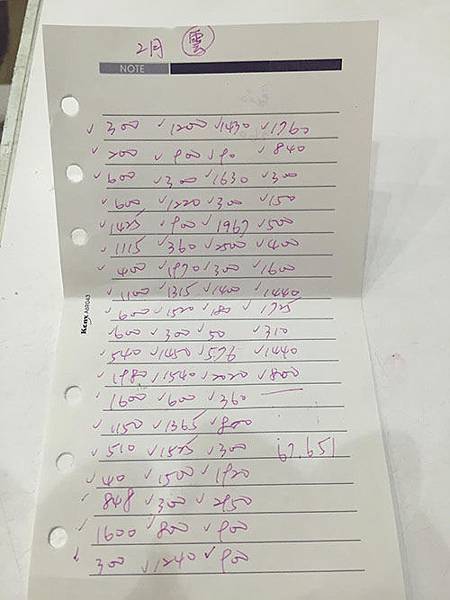 2月 雲
NOTE
✓300 ✓1200 ✓1430 ✓1760
✓200 ✓900 ✓90 ✓840
✓600 ✓300 ✓1630 ✓300
✓600 ✓1220 ✓300 ✓150
✓1425 ✓900 ✓1967 ✓500
✓1115 ✓360 ✓2500 ✓400
✓400 ✓1970 ✓300 ✓1600
✓1100 ✓1315 ✓1400 ✓1440
✓600 ✓1520 ✓180 ✓1725
✓600 ✓300 ✓50 ✓310
✓540 ✓1450 ✓576 ✓1440
✓1980 ✓1540 ✓2020 ✓800
✓1600 ✓600 ✓360
✓1150 ✓1365 ✓800
✓510 ✓1525 ✓300 67.651
✓40 ✓1500 ✓1920
✓848 ✓300 ✓2950
✓1600 ✓800 ✓900
✓300 ✓1240 ✓900